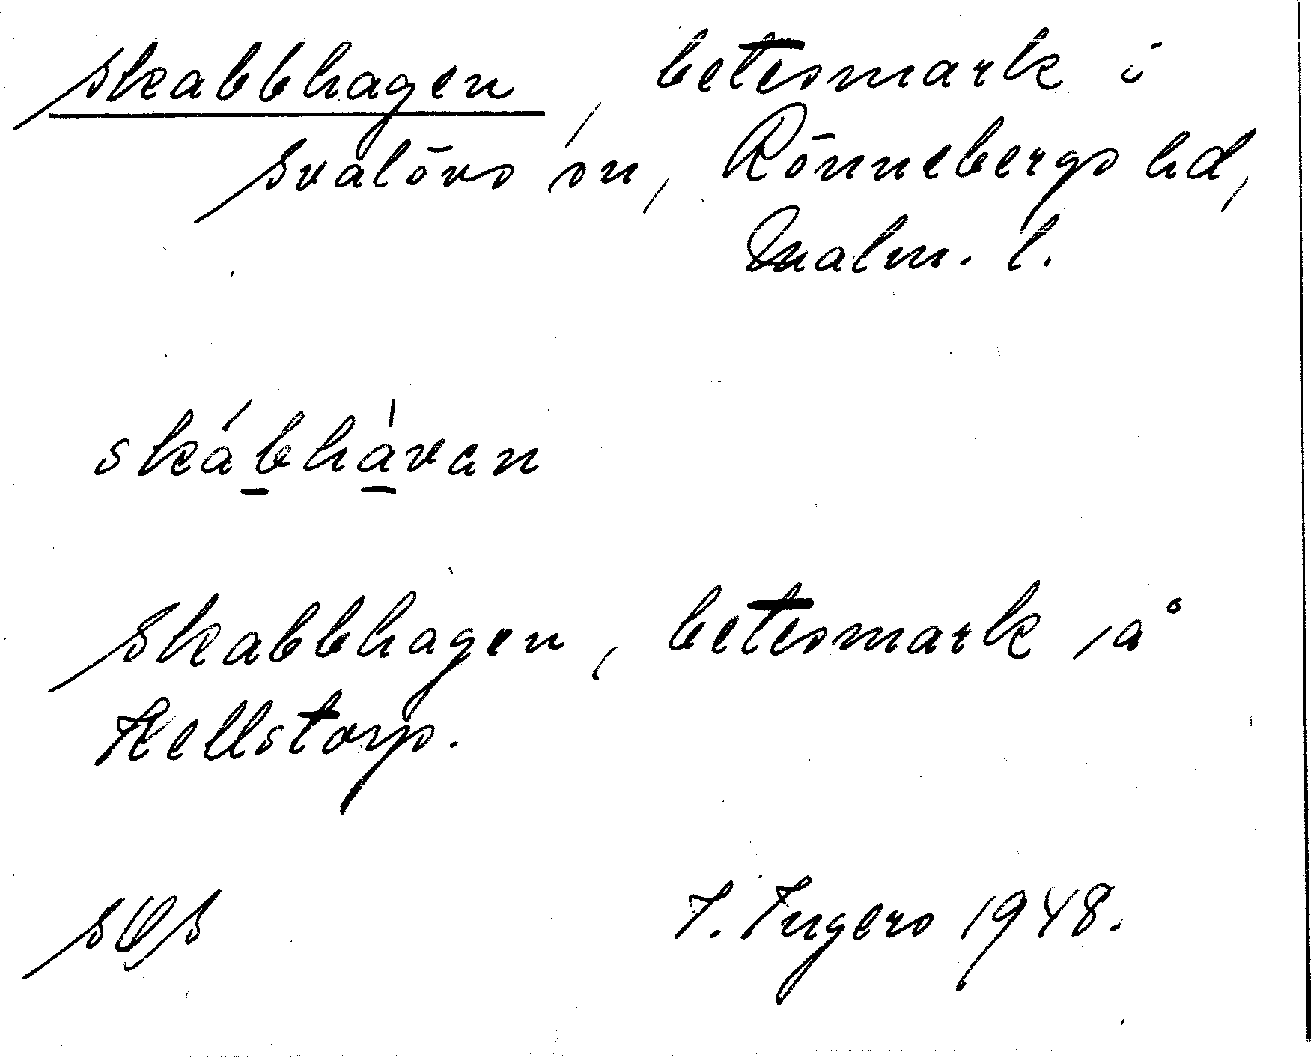 Skabbhagen, betesmark i
Svalövs sn, Rönnebergs hd,
Malm. l.
skábhàvan
Skabbhagen, betesmark å
Källstorp.
1948.